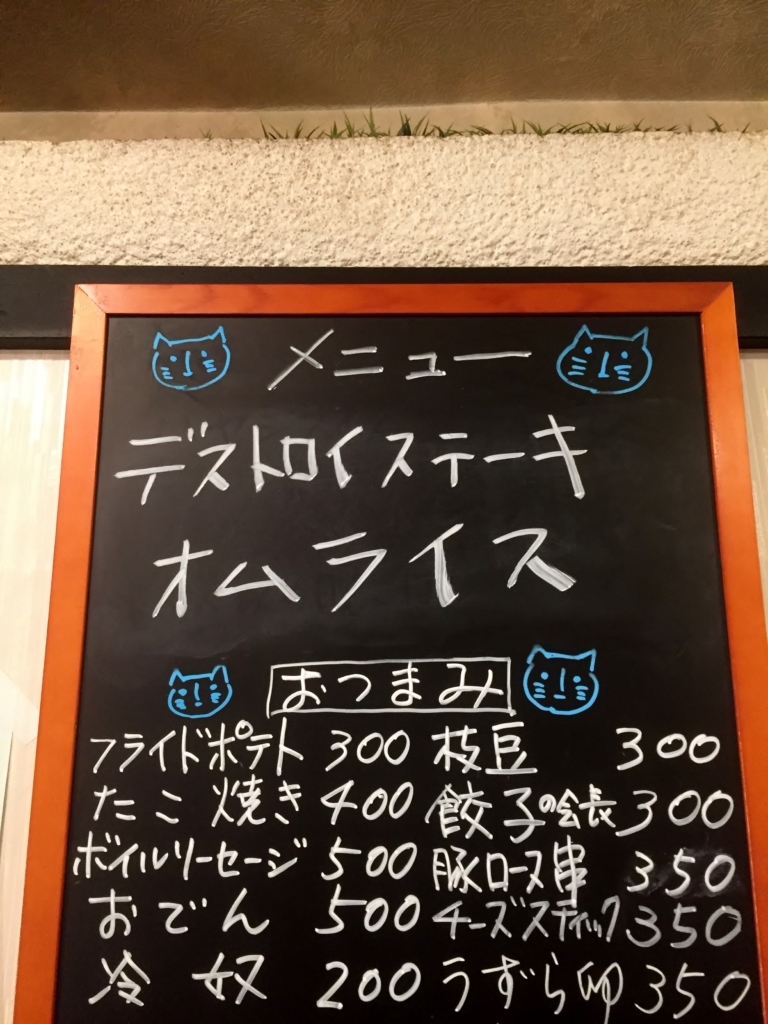 メニュー
デストロイステーキ
オムライス
おつまみ
フライドポテト 300 枝豆 300
たこ焼き 400 餃子の会長 300
ボイルソーセージ 500 豚ロース串 350
おでん 500 チーズスティック 350
冷奴 200 うずら卵 350